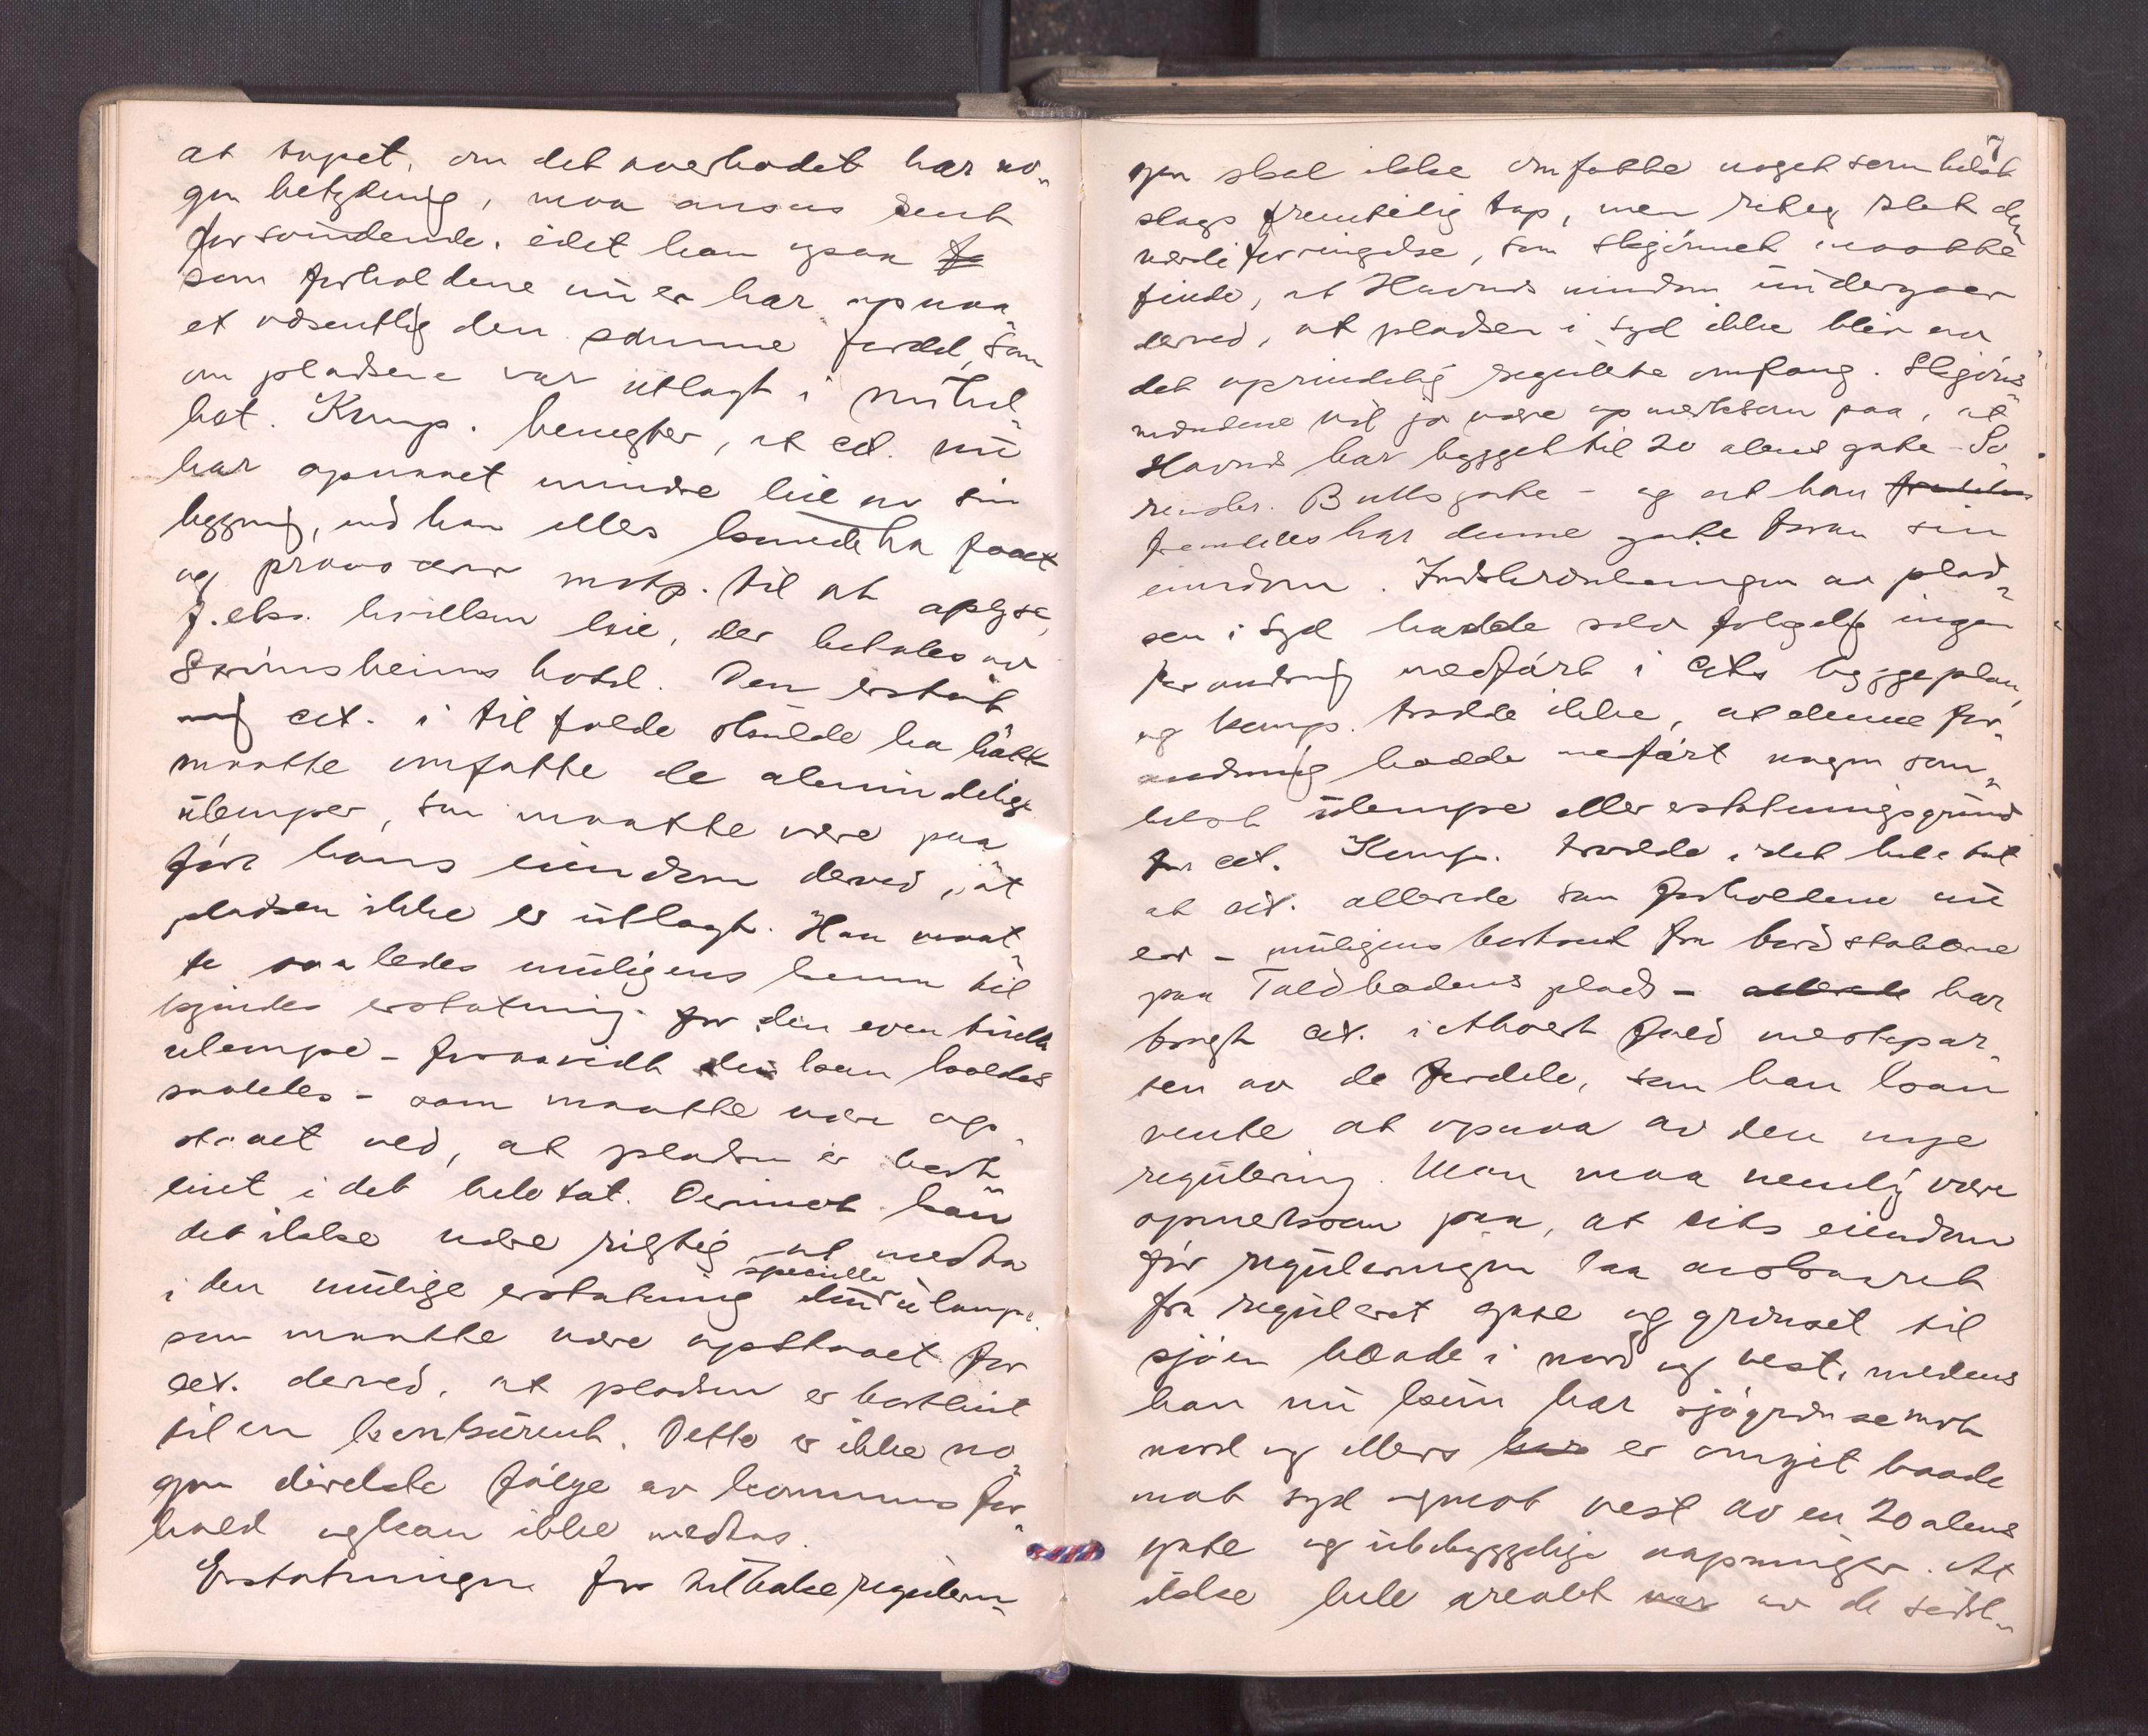 at tapet, om det overhodet har no-
gen betydning, maa ansees sent
forsvindende, idet han ogsaa
som forholdene nu er har opnaa-
et væsentlig den samme fordel, som
om pladsene var utlagt i sin hel-
het. Kmp. benegter, at cit. nu
har opnaaet mindre leie av sin
bygning, end han ellers kunde ha faaet
og provocerer motp. til at oplyse,
f.eks. hvilken leie, der betales av
hotel. Den erstat-
ning cit. i tilfælde skulde ha hatt
maatte omfatte de almindelige
ulemper, som maatte være paa-
ført hans eiendom derved, at
pladsen ikke er utlagt. Han maat-
te saaledes muligens kunne til-
kjendes erstatning for den eventuelle
ulempe - forsaavidt den kan kaldes
saaledes - som maatte være op-
staaet ved, at pladsen er bort-
leiet i det hele tat. Derimot kan
det ikke være rigtig at medta
i den mulige erstatning den specielle ulempe,
som maatte være opstaaet for
cit. derved, at pladsen er bortleiet
til en konkurent. Dette er ikke no-
gen direkte følge av kommunens for-
hold og kan ikke medtas.
Erstatningen for tilbakeregulerin-
7
gen skal ikke omfatte noget somhelst
slags fremtidig tap, men ret og slet den
værdiforringelse, som skjønnet maatte
finde, at Havnds eiendom undergaar
derved, at pladsen i syd ikke blir av
det oprindelig regulerte omfang. Skjøns-
mændene vil jo være opmerksom paa, at
Havnds har bygget til 20 alens gate - Sø-
renskr. Bulls gate - og at han
fremdeles har denne gate foran sin
eiendom. Indskrænkningen av plad-
sen i syd hadde selvfølgelig ingen
forandring medført i cits byggeplan,
og kmp. trodde ikke, at denne for-
andring hadde medført nogen som-
helst ulempe eller erstatningsgrund
for cit. Kmp. trodde i det hele tat
at cit. allerede som forholdene nu
er - muligens bortset fra bordstablerne
paa Toldbodens plads - allerede har
bragt cit. i ethvert fald mestepar-
ten av de fordele, som han kan
vente at opnaa av den nye
regulering. Man maa nemlig være
opmerksom paa, at cits eiendom
før reguleringen laa avskaaret
fra reguleret gate og grænset til
sjøen baade i nord og vest, medens
han nu kun har sjøgrænse mot
nord og ellers har er omgit baade
mot syd og mot vest av en 20 alens
gate og ubebyggelige aapninger. At
ikke hele arealet var av de sidst-